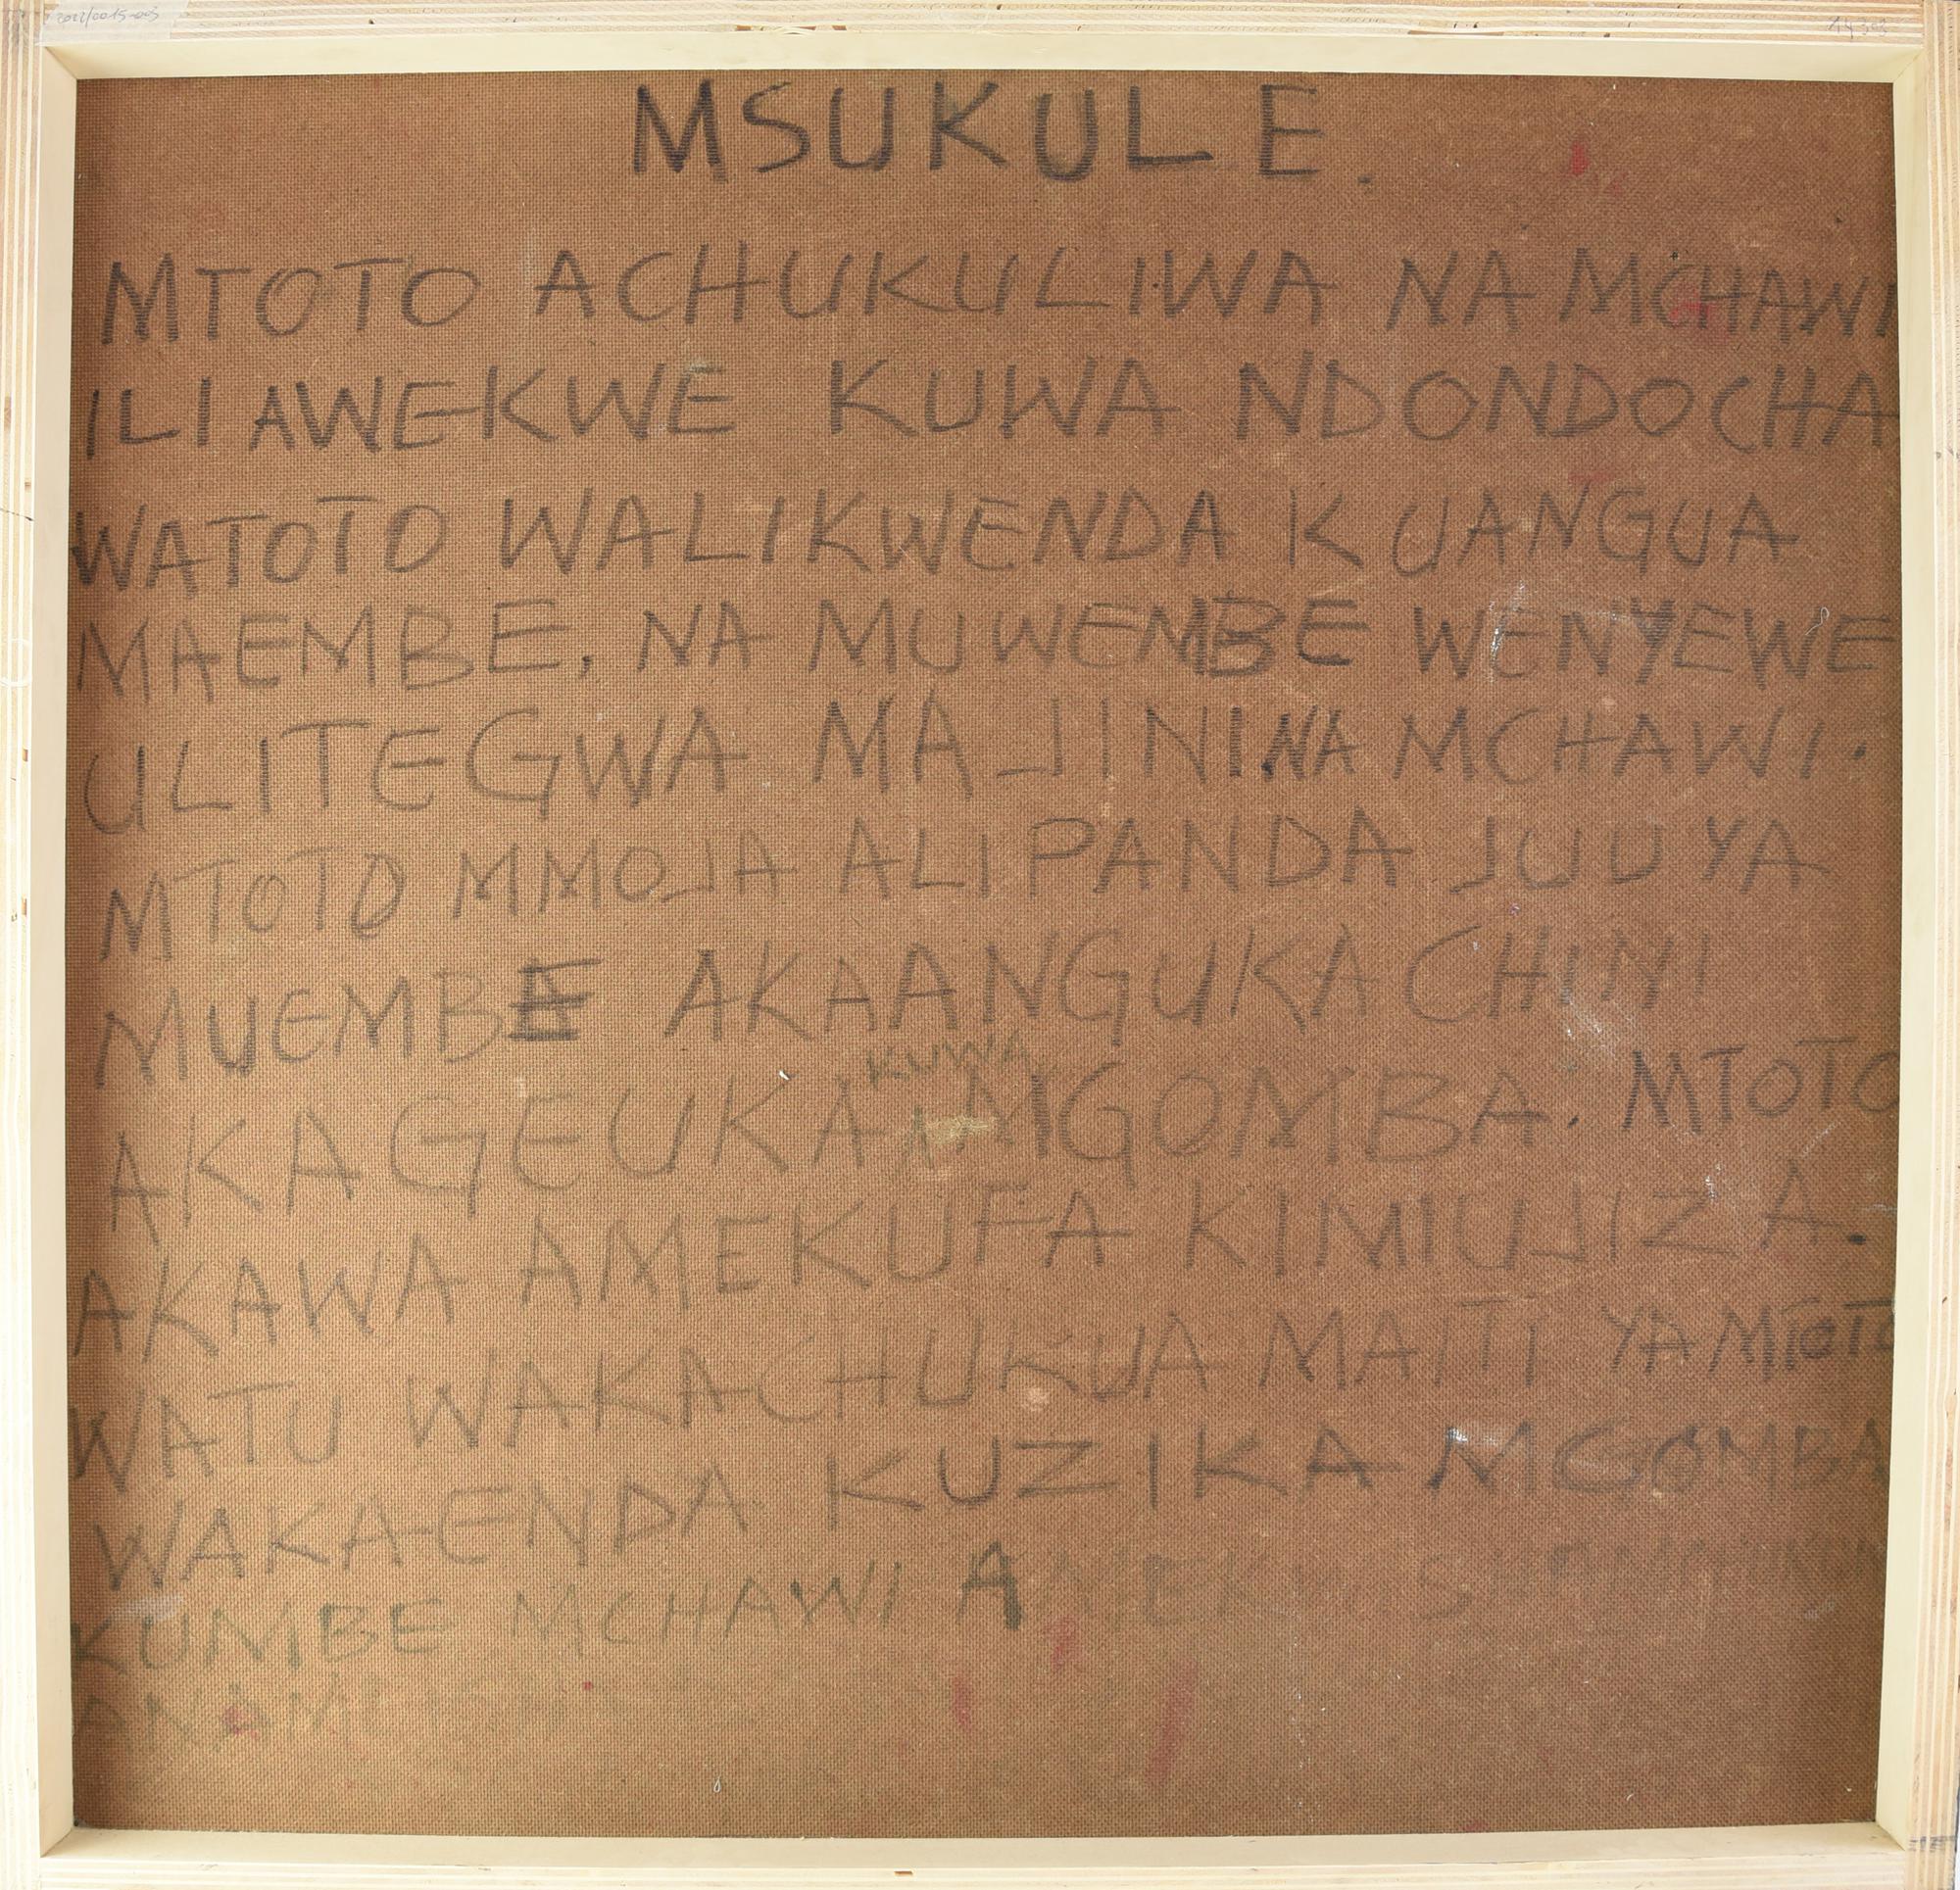 2022/0015-003
MSUKULE.
MTOTO ACHUKULIWA NA MCHAWI
ILI AWEKWE KUWA NDONDOCHA
WATOTO WALIKWENDA KUANGUA
MAEMBE. NA MUWEMBE WENYEWE
ULITEGWA MAJINI.NA MCHAWI.
MTOTO MMOJA ALIPANDA JUU YA
MUEMBE AKAANGUKA CHINI
KUWA
AKAGEUKA MGOMBA. MTOTO
AKAWA AMEKUFA KIMIUJIZA.
WATU WAKACHUKUA MAITI YA MTOTO
WAKAENDA KUZIKA MGOMBA
KUMBE MCHAWI